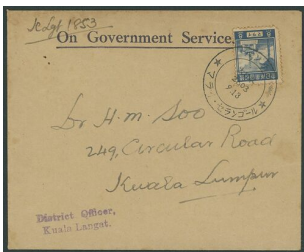 On Government Service.
Dr H. M. Soo
249, Circular Road
Kuala Lumpur
District Officer,
Kuala Langat.